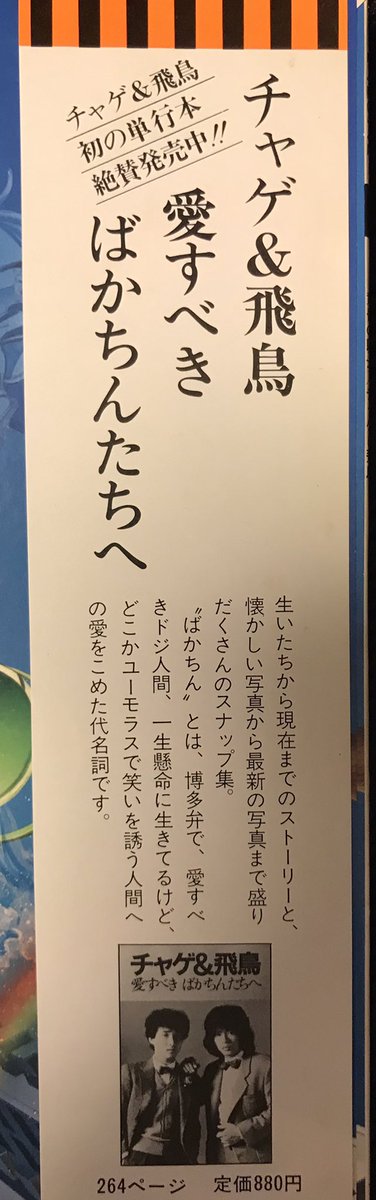 チャゲ&飛鳥
初の単行本
絶賛発売中!!
チャゲ&飛鳥
愛すべき
ばかちんたちへ
生いたちから現在までのストーリーと、
懐かしい写真から最新の写真まで盛り
だくさんのスナップ集。
〝ばかちん〟とは、博多弁で、愛すべ
きドジ人間、一生懸命に生きてるけど、
どこかユーモラスで笑いを誘う人間へ
の愛をこめた代名詞です。
チャゲ&飛鳥
愛すべき ばかちんたちへ
264ページ 定価880円